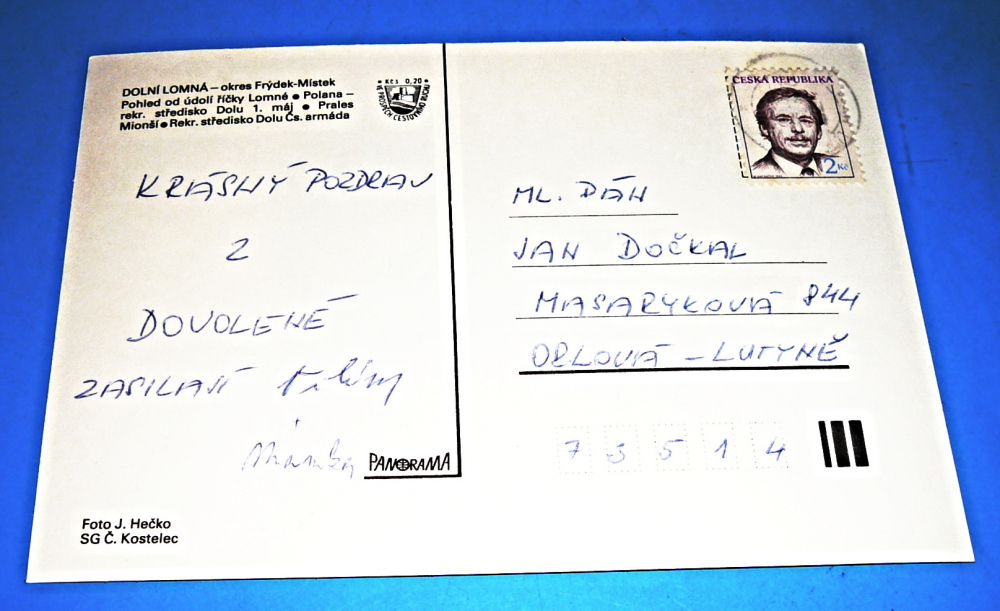 DOLNÍ LOMNÁ – okres Frýdek-Místek
Pohled od údolí říčky Lomné ● Polana –
rekr. středisko Dolu 1. máj ● Prales
Mionší ● Rekr. středisko Dolu Čs. armáda
Kčs 0,20
VE PROSPĚCH CESTOVNÍHO RUCHU
KRÁSNÝ POZDRAV
Z
DOVOLENÉ
ZASILAJÍ
PANORAMA
Foto J. Hečko
SG Č. Kostelec
ČESKÁ REPUBLIKA
2 Kč
ML. PÁN
JAN DOČKAL
MASARYKOVÁ 844
ORLOVÁ – LUTYNĚ
7 3 5 1 4